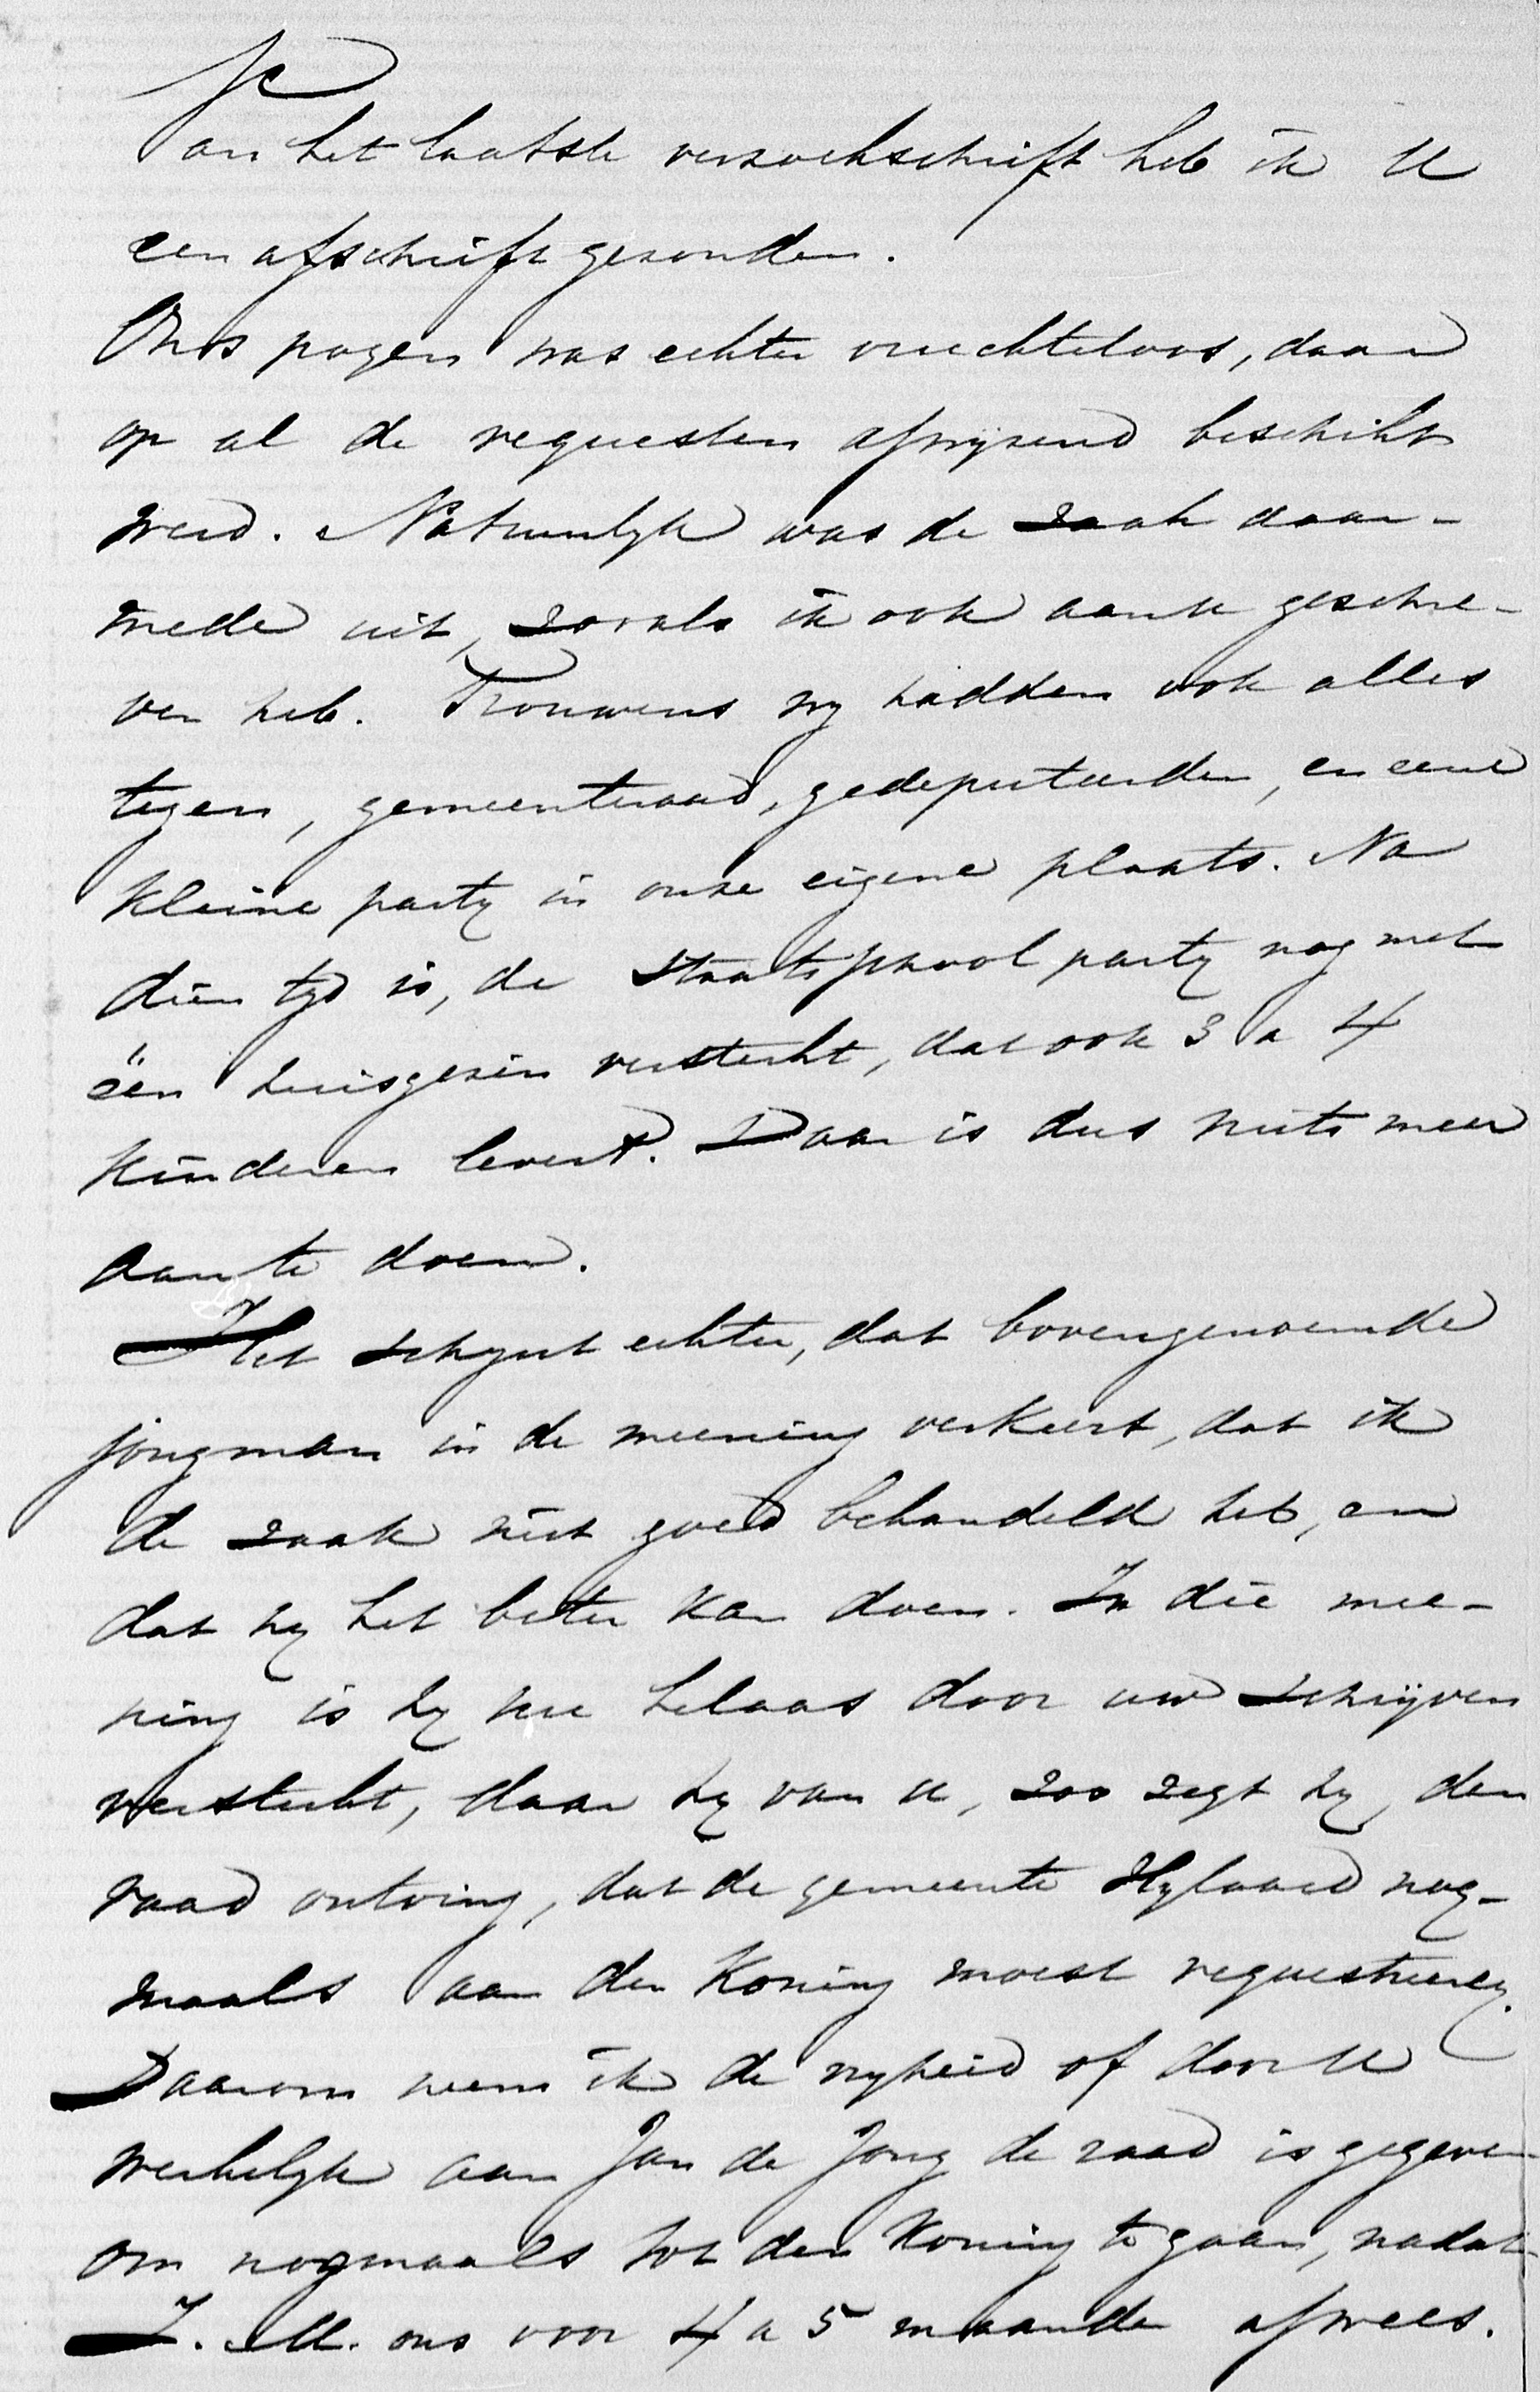 Van het laatste verzoekschrift heb ik U
een afschrift gezonden.
Ons pogen was echter vruchteloos, daar
op al de requesten afwijzend beschikt
werd. Natuurlyk was de zaak daar-
mede uit, zooals ik ook aan u geschre-
ven heb. Trouwens wy hadden ook alles
tegen, gemeenteraad, gedeputeerden, en eene
kleine party in onze eigene plaats. Na
dien tyd is, de staatsschool party nog met
één huisgezin versterkt, dat ook 3 a 4
kinderen levert. Daar is dus niets meer
aan te doen.
Het schynt echter, dat bovengenoemde
jongman in de meening verkeert, dat ik
de zaak niet goed behandeld heb, en
dat hy het beter kan doen. In die mee-
ning is hy nu helaas door uw schrijven
versterkt, daar hy van u, zoo zegt hy, den
raad ontving, dat de gemeente Hylaard nog-
maals aan den Koning moest requestreeren.
Daarom neem ik de vryheid of door U
werkelyk aan Jan de Jong de raad is gegeven
om nogmaals tot den Koning te gaan, nadat
Z. M. ons voor 4 a 5 maande afwees.